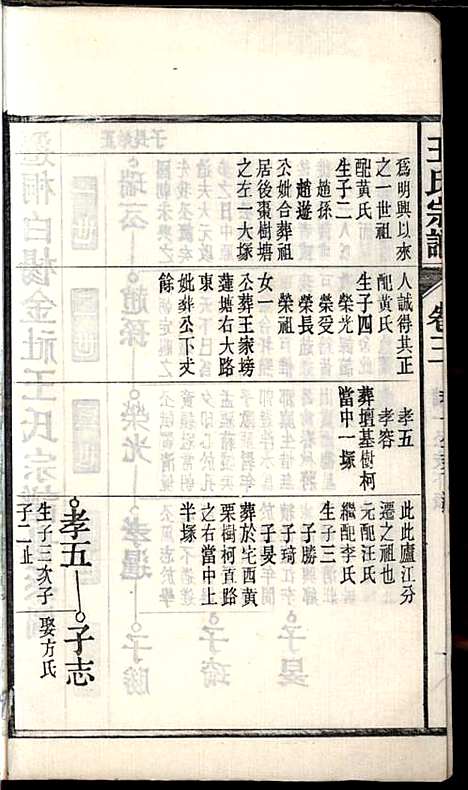 王氏宗譜
卷三
為明興以來
之一世祖
配黃氏
生子二
趙孫
趙遊
公妣合葬祖
居後棗樹塘
之左一大塚
人誠得其正
配黃氏
生子四
榮光
榮受
榮長
榮祖
女一
公葬王家塝
蓮塘右大路
東
妣葬公下丈
餘
孝五
孝容
葬壇基樹柯
當中一塚
此此廬江分
遷之祖也
元配汪氏
繼配李氏
生子三
子勝
子琦
子旻
葬於宅西黄
栗樹柯直路
之右當中上
半塚
孝五
生子三次子
子二止
子志
娶方氏